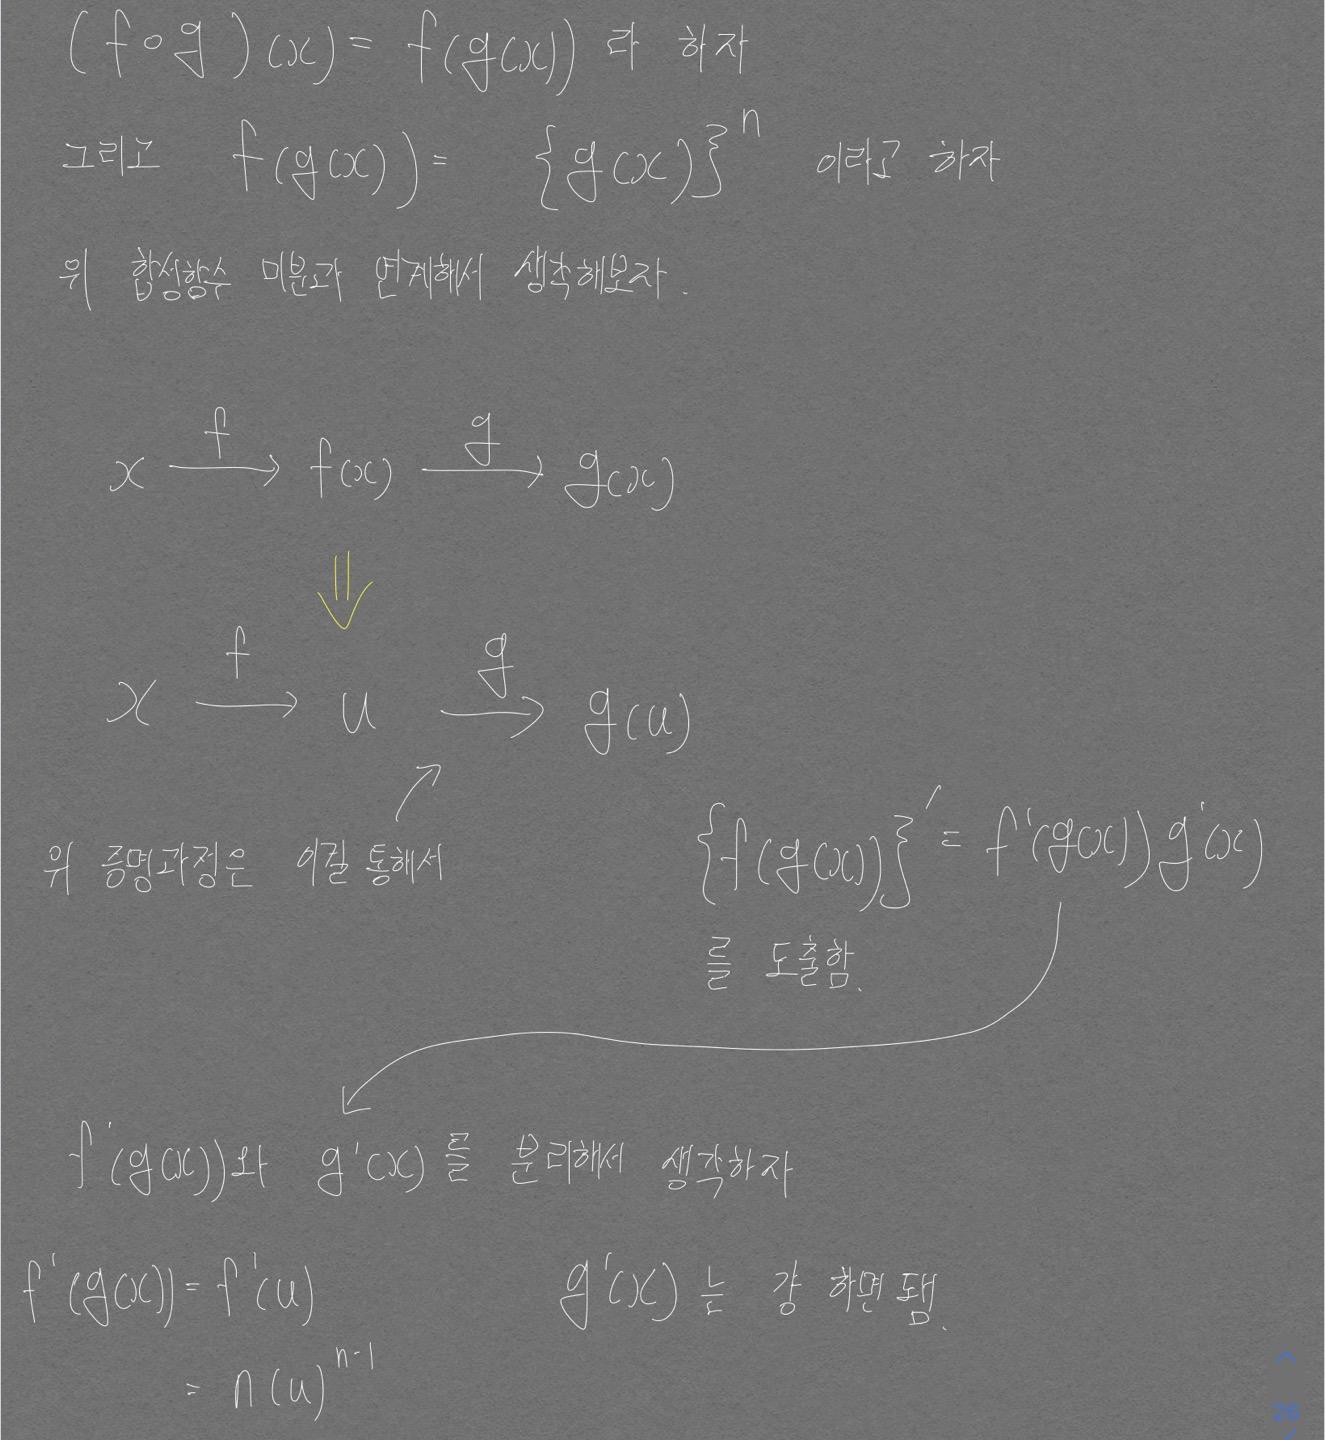 (f∘g)(x) = f(g(x)) 라 하자
그리고 f(g(x)) = {g(x)}^n 이라고 하자
위 합성함수 미분과 연계해서 생각해보자.
f g
x → f(x) → g(x)
⇓
f g
x → u → g(u)
위 증명과정은 이걸 통해서
{f(g(x))}' = f'(g(x))g'(x)
를 도출함.
f'(g(x))와 g'(x)를 분리해서 생각하자
f'(g(x)) = f'(u)
= n(u)^{n-1}
g'(x)는 걍 하면 됌.
26